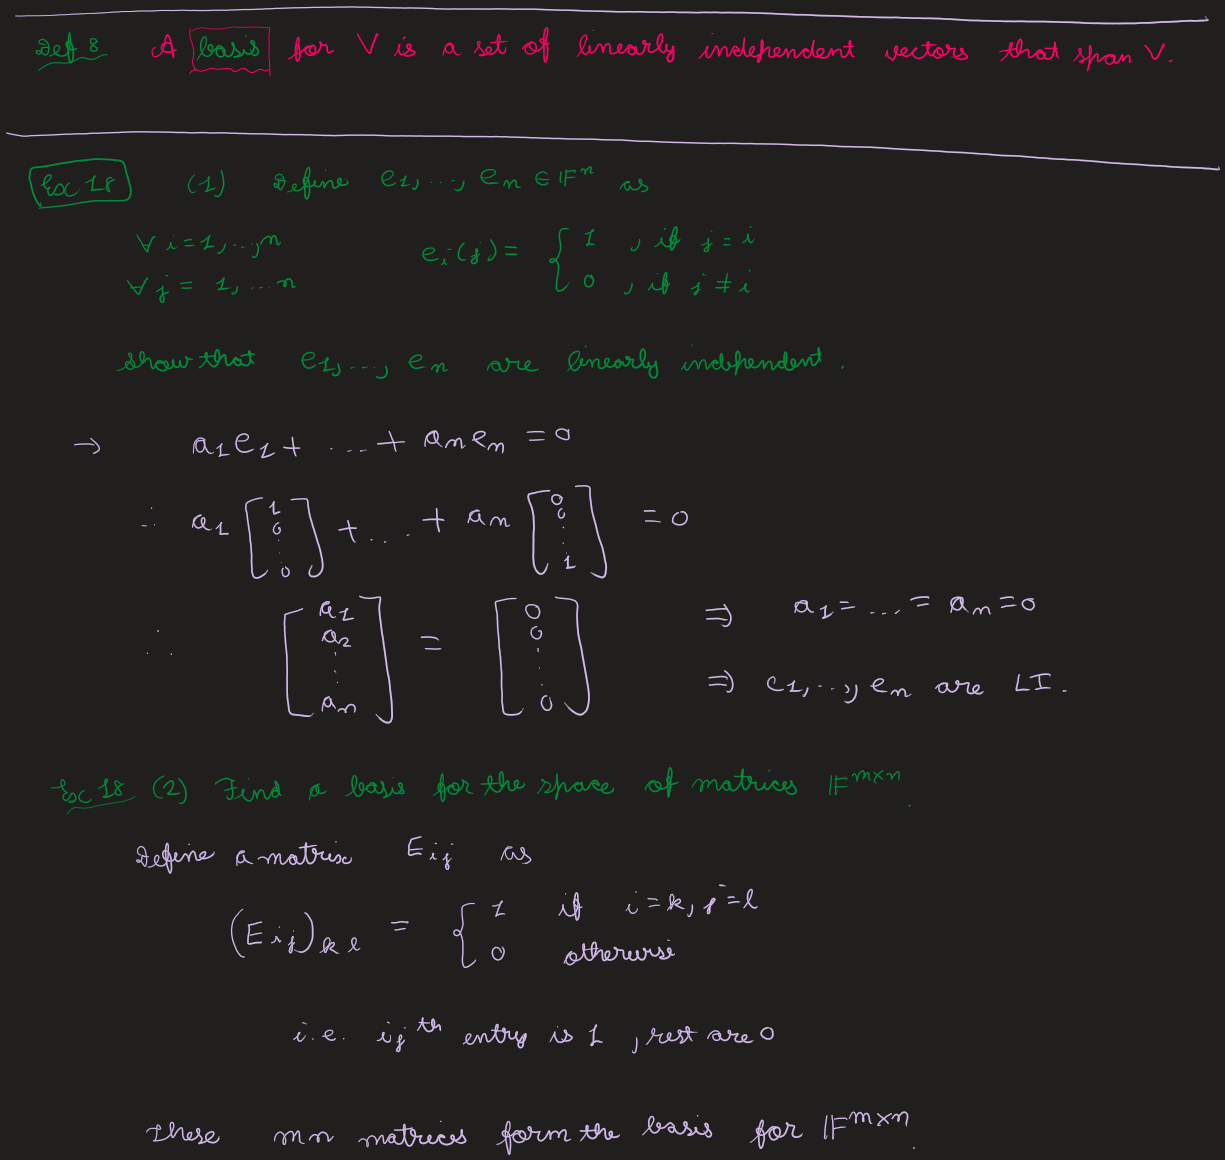 Def 8 A basis for V is a set of linearly independent vectors that span V.
Ex 18 (1) Define e1, ..., en ∈ 𝔽ⁿ as
∀ i = 1, ..., n eᵢ(j) = { 1 , if j = i
∀ j = 1, ... n 0 , if j ≠ i
show that e1, ..., en are linearly independent.
→ a1e1 + .... + anen = 0
∴ a1 [1 0 ⋮ 0] + .... + an [0 0 ⋮ 1] = 0
∴ [a1 a2 ⋮ an] = [0 0 ⋮ 0] ⇒ a1 = .... = an = 0
⇒ e1, ..., en are LI.
Ex 18 (2) Find a basis for the space of matrices 𝔽ᵐˣⁿ.
Define a matrix Eij as
(Eij)kl = { 1 if i = k, j = l
0 otherwise
i.e. ijᵗʰ entry is 1 , rest are 0
These mn matrices form the basis for 𝔽ᵐˣⁿ.